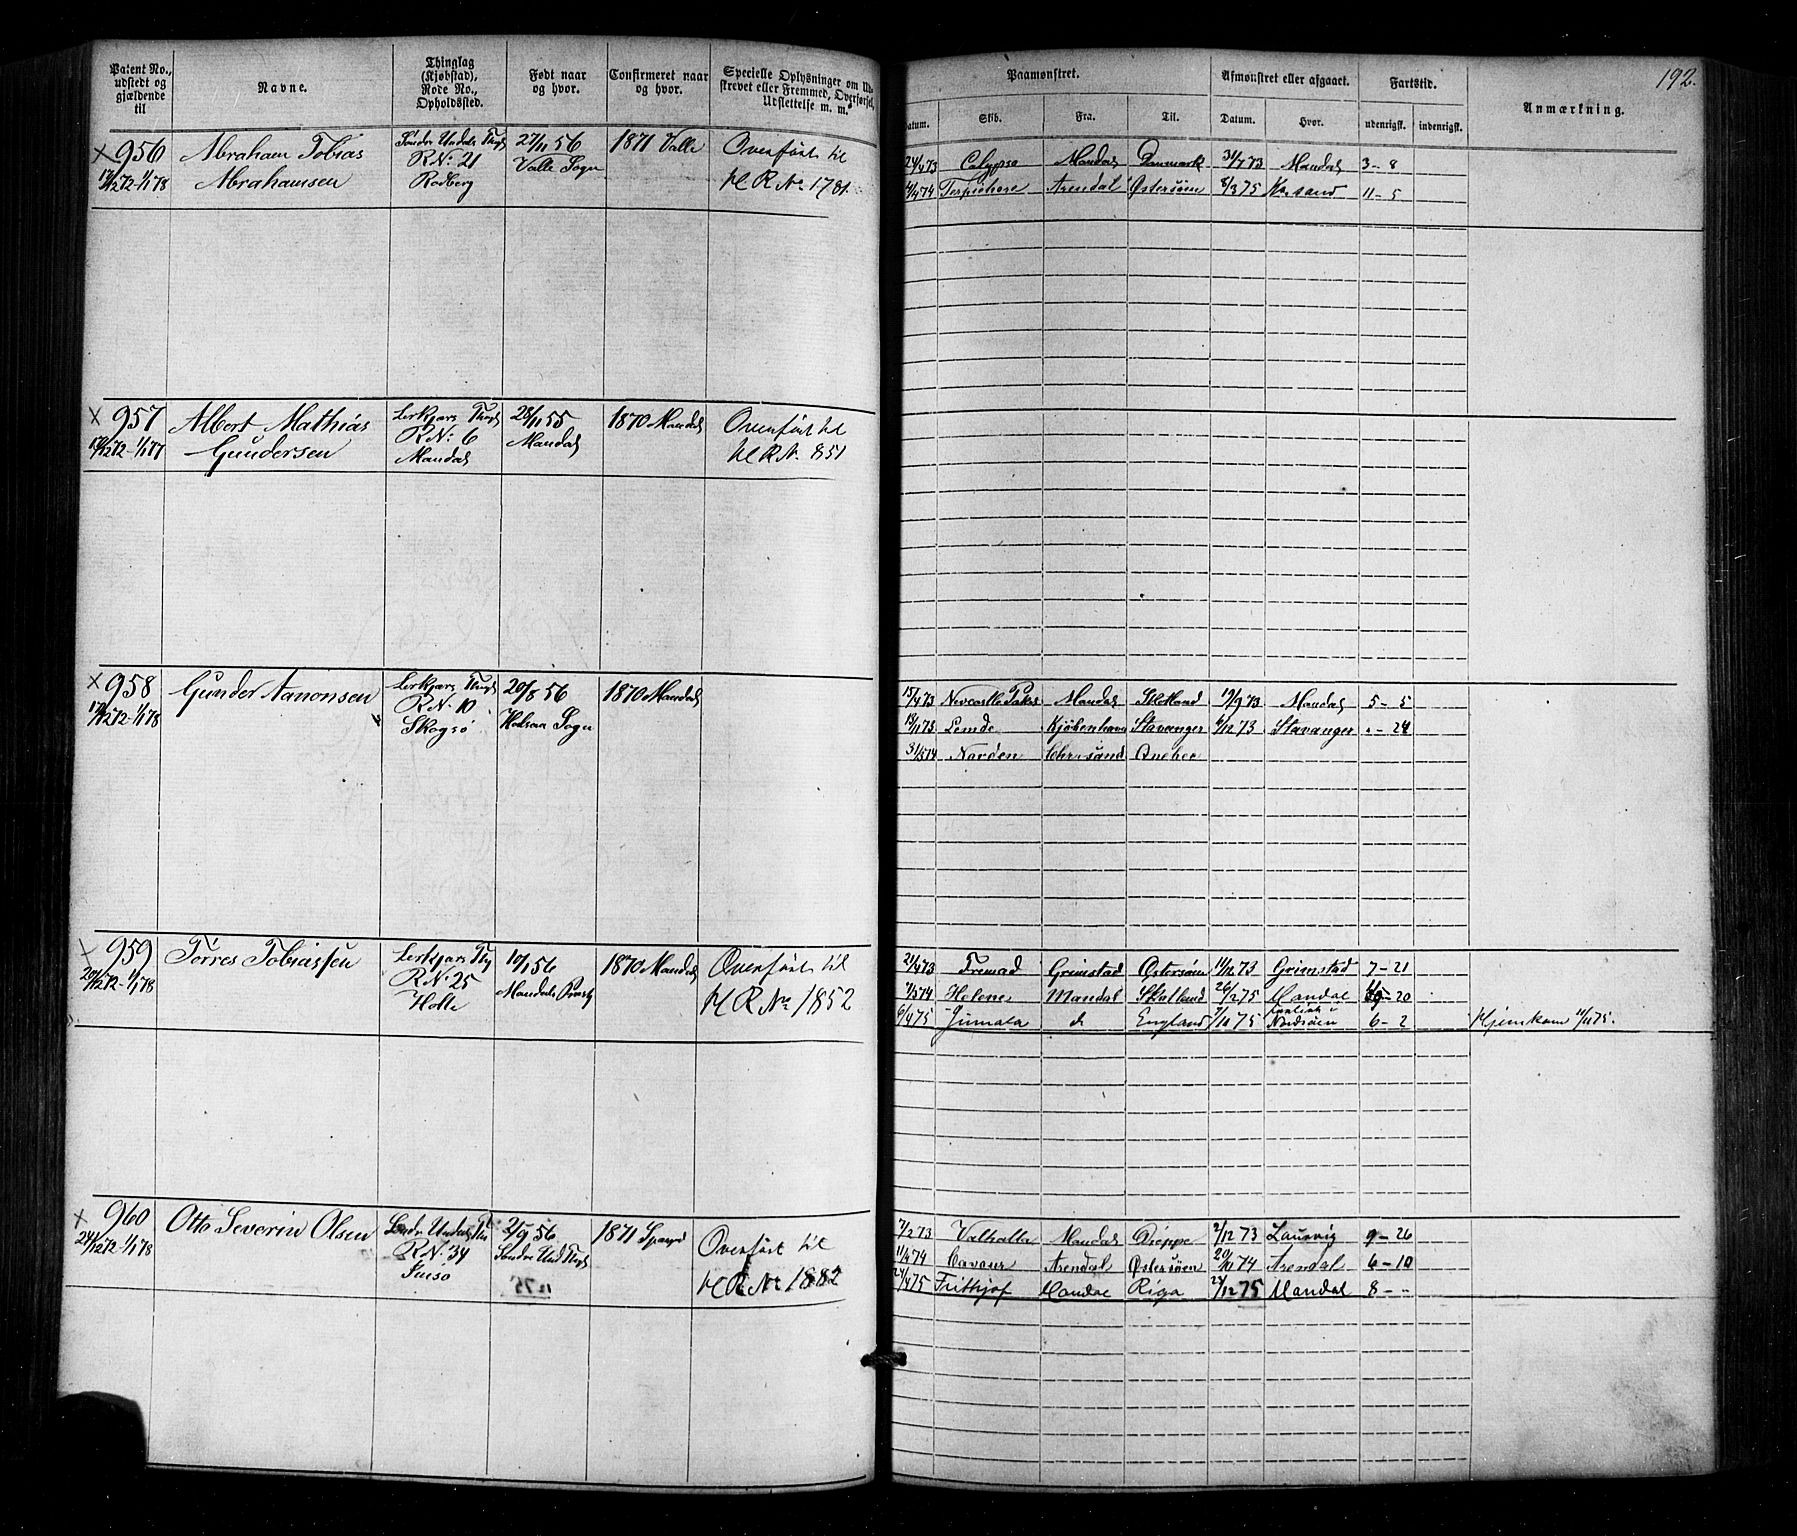 192.
Patent No., udstedt og gjældende til
Navne.
Thinglag (Kjøbstad), Rode No., Opholdssted.
Født naar og hvor.
Confirmeret naar og hvor.
Specielle Oplysninger om Udstrevet eller Fremmed, Overførsel, Udslettelse m. m.
Paamønstret.
Datum. Skib. Fra. Til.
Afmønstret eller afgaaet.
Datum. Hvor.
Fartstid.
udenrigsk. indenrigsk.
Anmærkning.
X 956
17/12 72-1/1 78
Abraham Tobias
Abrahamsen
Søndre Undals Thgl
RN: 21
Rødberg
27/11 56
Valle Sogn
1871 Valle
Overført til
H R No 1781.
24/4 73 Calypso Mandal Danmark 31/7 73 Mandal 3-8
4/4 74 Terpsichore Arendal Østersøen 8/3 75 Krsand 11-5
X 957
17/12 72-1/1 77
Albert Mathias
Gundersen
Lerkjærs Thgl
RN: 6
Mandal
28/11 55
Mandal
1870 Mandal
Overført til
H R N. 851
X 958
17/12 72-1/1 78
Gunder Aanonsen
Lerkjærs Thgl
RN. 10
Skogsø
20/8 56
Halsaa Sogn
1870 Mandal
15/4 73 Newcastle Packet Mandal Skotland 19/9 73 Mandal 5-5
13/11 73 Kjøbenhavn Stavanger 6/12 73 Stavanger "-24
31/5 74 Norden Chrsand Quebec
X 959
20/12 72-1/1 78
Tørres Tobiassen
Lerkjærs Thg
RN: 25
Holte
10/1 56
Mandals Prestg
1870 Mandal
Overført til
H R No 1852
21/4 73 Fremad Grimstad Østersøen 11/12 73 Grimstad 7-21
7/5 74 Helene Mandal Skotland 26/2 75 Mandal 20
6/4 75 Jumala do England 7/10 75 Nordsøen 6-2 Hjemkom 11/10 75.
X 960
24/12 72-1/1 78
Otto Severin Olsen
Søndre Undals Th
RN. 34
2/9 56
Søndre Und Thgl
1871 Spangd
Overført til
H R No 1882
7/2 73 Valhalla Mandal Dieppe 2/12 73 Laurvig 9-26
11/4 74 Cavour Arendal Østersøen 20/10 74 Arendal 6-10
24/4 75 Frithjof Mandal Riga 24/12 75 Mandal 8--